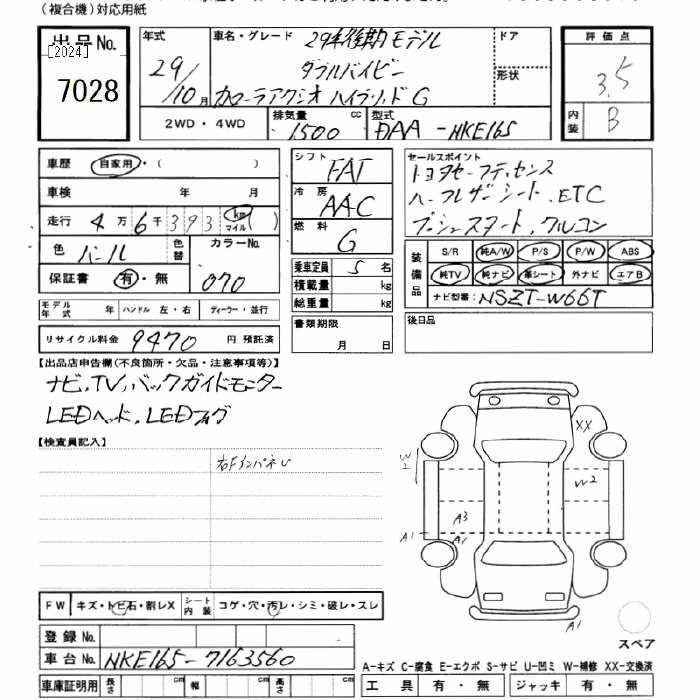 (複合機)対応用紙
出品No.
[2024]
7028
年式
29/10月
車名・グレード 29年後期モデル
ダブルバイビー
カローラアクシオ ハイブリッド G
ドア
形状
評価点
3.5
内装
B
2WD・4WD
排気量 1500 cc
型式 DAA-NKE165
車歴 自家用・( )
車検 年 月
走行 4万6千393 km マイル ( )
色 パール
色替
カラーNo. 070
保証書 有・無
モデル年式 年
ハンドル 左・右
ディーラー・並行
リサイクル料金 9470 円 預託済
シフト FAT
冷房 AAC
燃料 G
乗車定員 5名
積載量 kg
総重量 kg
書類期限
月 日
セールスポイント
トヨタセーフティセンス
ハーフレザーシート、ETC
プッシュスタート、クルコン
装備品
S/R 純A/W P/S P/W ABS
純TV 純ナビ 革シート 外ナビ エアB
ナビ型番: NSZT-W66T
後日品
【出品店申告欄(不良箇所・欠品・注意事項等)】
ナビ,TV,バックガイドモニター
LEDヘッド,LEDフォグ
【検査員記入】
右FインパネU
XX
W2
W2
A3
A1
A1
A1
スペア
FW キズ・トビ石・割レX
シート内装 コゲ・穴・汚レ・シミ・破レ・スレ
登録No.
車台No. NKE165-7163560
車庫証明用 長さ cm 幅 cm 高さ cm
A-キズ C-腐食 E-エクボ S-サビ U-凹ミ W-補修 XX-交換済
工具 有・無 ジャッキ 有・無